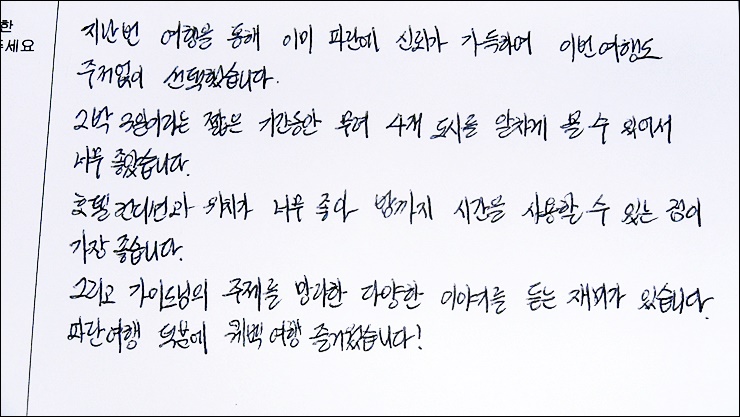 한
주세요
지난번 여행을 통해 이미 파란에 신뢰가 가득하여 이번여행도
주저없이 선택했습니다.
2박 3일이라는 짧은 기간동안 무려 4개 도시를 알차게 볼 수 있어서
너무 좋았습니다.
호텔 컨디션과 위치가 너무 좋아 밤까지 시간을 사용할 수 있는 점이
가장 좋습니다.
그리고 가이드님의 주제를 망라한 다양한 이야기를 듣는 재미가 있습니다.
파란여행 덕분에 퀘벡 여행 즐거웠습니다!